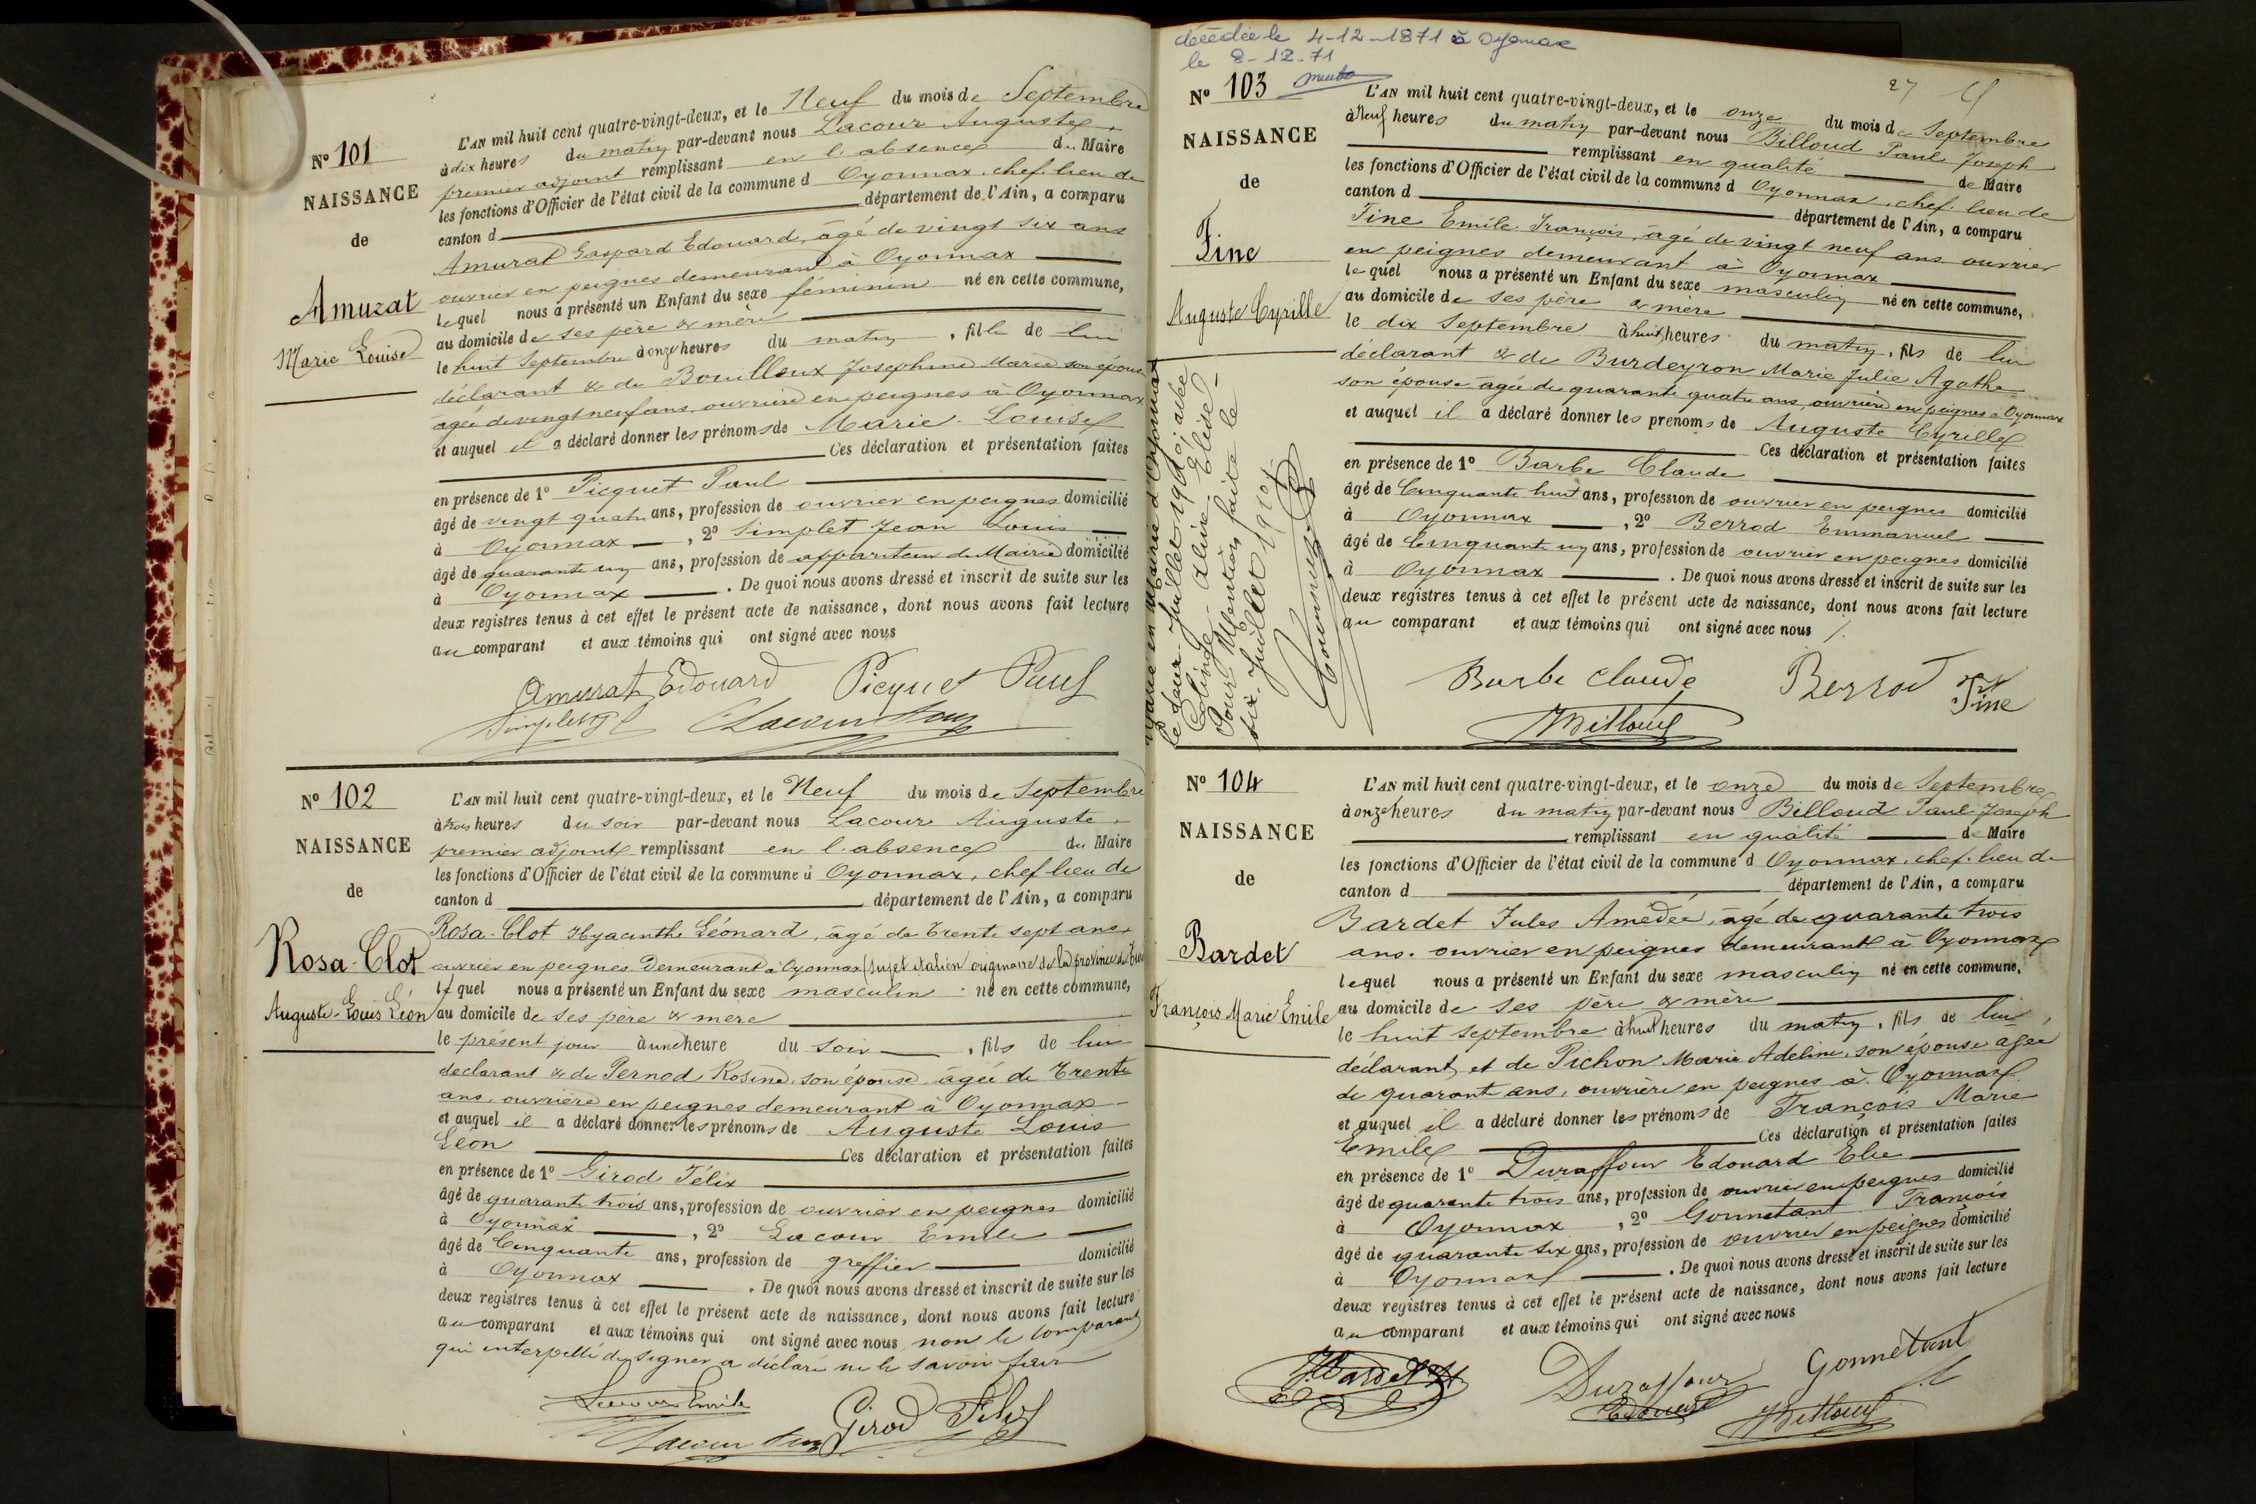 N° 101
NAISSANCE
de
Amurat
Marie Louise
L'AN mil huit cent quatre-vingt-deux, et le Neuf du mois de Septembre
à dix heures du matin par-devant nous Lacour Auguste
premier adjoint remplissant en l'absence du Maire
les fonctions d'Officier de l'état civil de la commune d Oyonnax, chef-lieu de
canton d département de l'Ain, a comparu
Amurat Gaspard Edouard, âgé de vingt six ans
ouvrier en peignes demeurant à Oyonnax
lequel nous a présenté un Enfant du sexe féminin né en cette commune,
au domicile de ses père & mère
le huit Septembre à onze heures du matin, fille de lui
déclarant & de Bouilloux Josephine Marie son épouse
âgée de vingt neuf ans, ouvrière en peignes à Oyonnax
et auquel il a déclaré donner les prénoms de Marie Louise
Ces déclaration et présentation faites
en présence de 1° Picquet Paul
âgé de vingt quatre ans, profession de ouvrier en peignes domicilié
à Oyonnax, 2° Simplet Jean Louis
âgé de quarante un ans, profession de appariteur de Mairie domicilié
à Oyonnax. De quoi nous avons dressé et inscrit de suite sur les
deux registres tenus à cet effet le présent acte de naissance, dont nous avons fait lecture
au comparant et aux témoins qui ont signé avec nous
Amurat Edouard Picquet Paul
N° 102
NAISSANCE
de
Rosa-Clot
Auguste-Louis Léon
L'AN mil huit cent quatre-vingt-deux, et le Neuf du mois de Septembre
à trois heures du soir par-devant nous Lacour Auguste
premier adjoint remplissant en l'absence du Maire
les fonctions d'Officier de l'état civil de la commune d Oyonnax, chef lieu de
canton d département de l'Ain, a comparu
Rosa-Clot Hyacinthe Léonard, âgé de trente sept ans
ouvrier en peignes demeurant à Oyonnax (sujet italien originaire de la province de
lequel nous a présenté un Enfant du sexe masculin né en cette commune,
au domicile de ses père & mère
le présent jour à une heure du soir, fils de lui
déclarant & de Pernod Rosine, son épouse, âgée de trente
ans, ouvrière en peignes demeurant à Oyonnax
et auquel il a déclaré donner les prénoms de Auguste Louis
Léon Ces déclaration et présentation faites
en présence de 1° Girod Félix
âgé de quarante trois ans, profession de ouvrier en peignes domicilié
à Oyonnax, 2° Lacour Emile
âgé de Cinquante ans, profession de greffier domicilié
à Oyonnax. De quoi nous avons dressé et inscrit de suite sur les
deux registres tenus à cet effet le présent acte de naissance, dont nous avons fait lecture
au comparant et aux témoins qui ont signé avec nous non le comparant
qui interpellé de signer a déclaré ne le savoir faire
Lacour Emile
Girod Félix
décédée le 4-12-1871 à Oyonnax
le 8-12-71
27
N° 103
NAISSANCE
de
Fine
Auguste Cyrille
L'AN mil huit cent quatre-vingt-deux, et le onze du mois de Septembre
à Neuf heures du matin par-devant nous Billoud Paul Joseph
remplissant en qualité de Maire
les fonctions d'Officier de l'état civil de la commune d Oyonnax, chef-lieu de
canton d département de l'Ain, a comparu
Fine Emile François, âgé de vingt neuf ans ouvrier
en peignes demeurant à Oyonnax
lequel nous a présenté un Enfant du sexe masculin né en cette commune,
au domicile de ses père & mère
le dix Septembre à huit heures du matin, fils de lui
déclarant & de Burdeyron Marie Julie Agathe
son épouse âgée de quarante quatre ans, ouvrière en peignes à Oyonnax
et auquel il a déclaré donner les prénoms de Auguste Cyrille
Ces déclaration et présentation faites
en présence de 1° Barbe Claude
âgé de Cinquante huit ans, profession de ouvrier en peignes domicilié
à Oyonnax, 2° Berrod Emmanuel
âgé de Cinquante un ans, profession de ouvrier en peignes domicilié
à Oyonnax. De quoi nous avons dressé et inscrit de suite sur les
deux registres tenus à cet effet le présent acte de naissance, dont nous avons fait lecture
au comparant et aux témoins qui ont signé avec nous
en Mairie d'Oyonnax
le deux Juillet avec
Aline Elise
Pour Mention faite le
six Juillet
Barbe Claude Berrod Fine
PBilloud
N° 104
NAISSANCE
de
Bardet
François Marie Emile
L'AN mil huit cent quatre-vingt-deux, et le onze du mois de Septembre
à onze heures du matin par-devant nous Billoud Paul Joseph
remplissant en qualité de Maire
les fonctions d'Officier de l'état civil de la commune d Oyonnax, chef-lieu de
canton d département de l'Ain, a comparu
Bardet Jules Amédée, âgé de quarante trois
ans, ouvrier en peignes demeurant à Oyonnax
lequel nous a présenté un Enfant du sexe masculin né en cette commune,
au domicile de ses père & mère
le huit septembre à huit heures du matin, fils de lui,
déclarant et de Pichon Marie Adeline, son épouse âgée
de quarante ans, ouvrière en peignes à Oyonnax
et auquel il a déclaré donner les prénoms de François Marie
Emile Ces déclaration et présentation faites
en présence de 1° Duraffour Edouard Elie
âgé de quarante trois ans, profession de ouvrier en peignes domicilié
à Oyonnax, 2° Gonnetant François
âgé de quarante six ans, profession de ouvrier en peignes domicilié
à Oyonnax. De quoi nous avons dressé et inscrit de suite sur les
deux registres tenus à cet effet le présent acte de naissance, dont nous avons fait lecture
au comparant et aux témoins qui ont signé avec nous
JBardet Duraffour Gonnétant
Edouard PBilloud